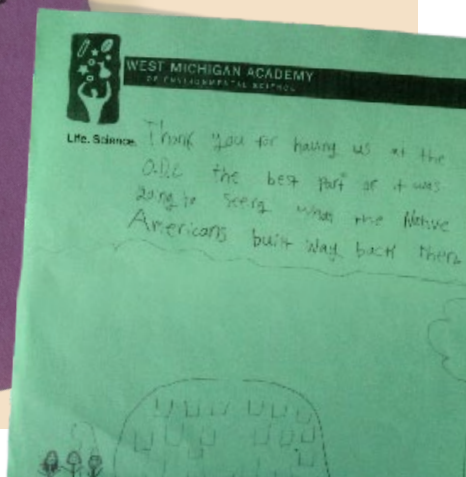 WEST MICHIGAN ACADEMY
OF ENVIRONMENTAL SCIENCE
Life. Science.
Thank you for having us at the
O.D.C the best part of it was
going to seeing what the Native
Americans built way back there